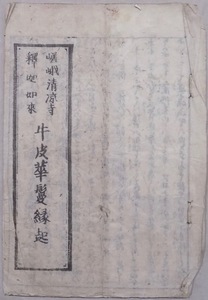 嵯峨清凉寺
釋迦如來
牛皮華鬘縁起